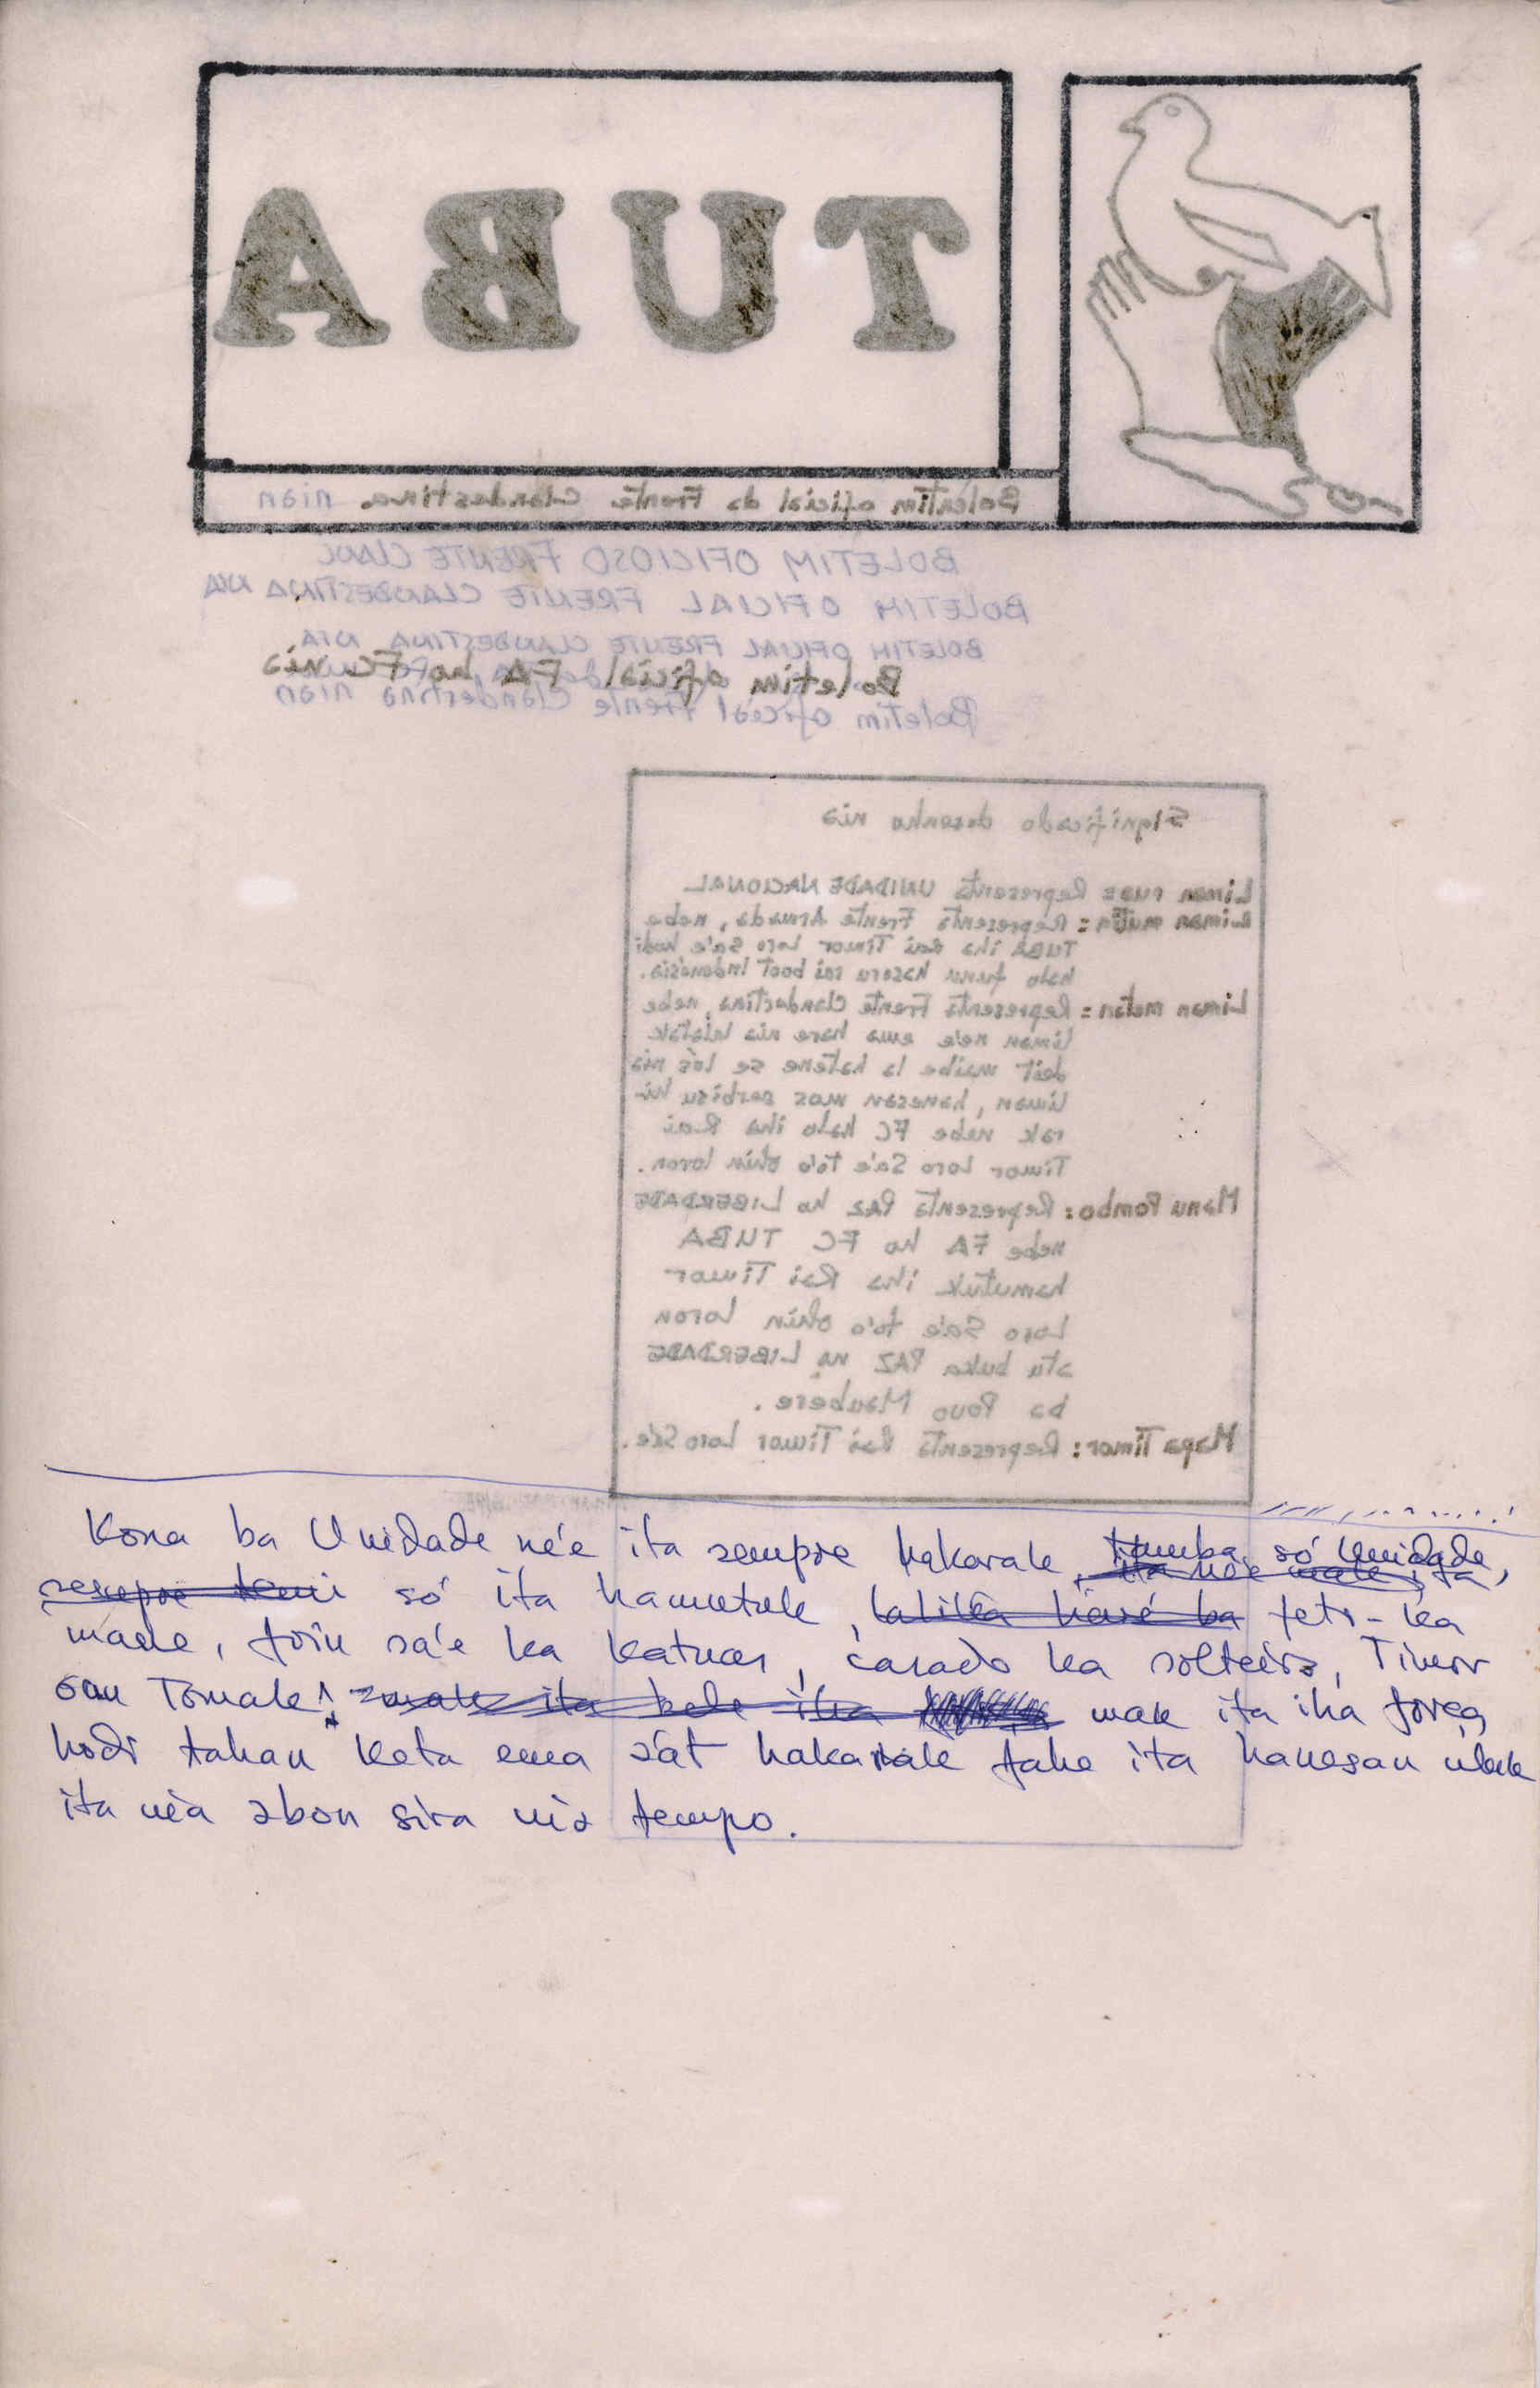 TUBA
Boletim oficial da Frente Clandestina nian
BOLETIM OFICIOSO FRENTE CLAN
BOLETIM OFICIAL FRENTE CLANDESTINA NIA
BOLETIM OFICIAL FRENTE CLANDESTINA NIA
Boletim oficial FA ho FC nia
Boletim oficial Frente Clandestina nian
Significado desenho nia
Liman rua: Representa UNIDADE NACIONAL
Liman mutin: Representa Frente Armada, nebe
TUBA iha Rai Timor Loro Sa'e hodi
halo funu hasoru rai boot Indonésia.
Liman metan: Representa Frente Clandestina, nebe
liman ne'e ema hare nia lalatak
deit maibe la hatene se lós nia
liman, hanesan mos serbisu hi-
rak nebe FC halo iha Rai
Timor Loro Sa'e to'o ohin loron.
Manu Pombo: Representa PAZ ho LIBERDADE
nebe FA ho FC TUBA
hamutuk iha Rai Timor
Loro Sa'e to'o ohin loron
atu buka PAZ na LIBERDADE
ba Povo Maubere.
Mapa Timor: Representa Rai Timor Loro Sa'e.
Kona ba Unidade ne'e ita sempre hakarak, só Unidade,
sempre só ita hamutuk, feto-ka
mane, foin sa'e ka katuas, casado ka solteiro, Timor
oan Tomak! mak ita iha força
hodi tahan keta ema sa'at hakarak fahe ita hanesan uluk
ita nia abon sira nia tempo.